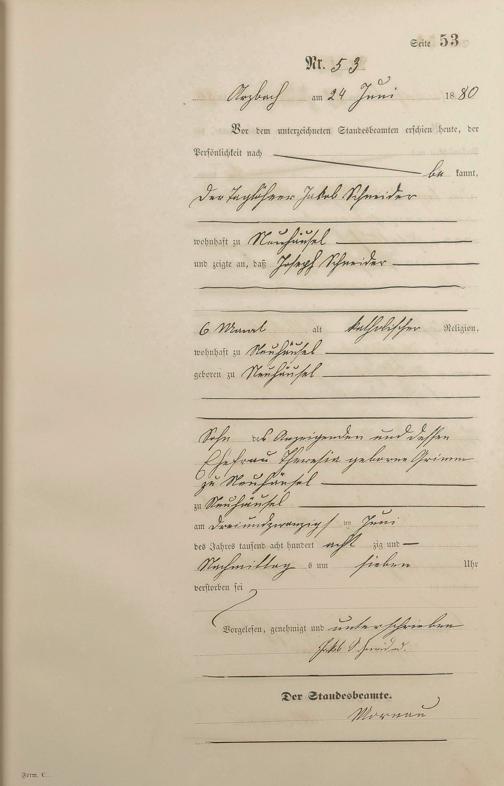 Seite 53
Nr. 53
Arzbach am 24 Juni 1880
Vor dem unterzeichneten Standesbeamten erschien heute, der
Persönlichkeit nach
be kannt,
der Taglöhner Jakob Schneider
wohnhaft zu Neuhäusel
und zeigte an, daß Joseph Schneider
6 Monat alt katholischer Religion,
wohnhaft zu Neuhäusel
geboren zu Neuhäusel
Sohn des Anzeigenden und dessen
Ehefrau Theresia geborne Grimm
zu Neuhäusel
zu Neuhäusel
am dreiundzwanzigst Juni
des Jahres tausend acht hundert acht zig und
Nachmittag s um sieben Uhr
verstorben sei
Vorgelesen, genehmigt und unterschrieben
Jakob Schneider
Der Standesbeamte.
Form. C.